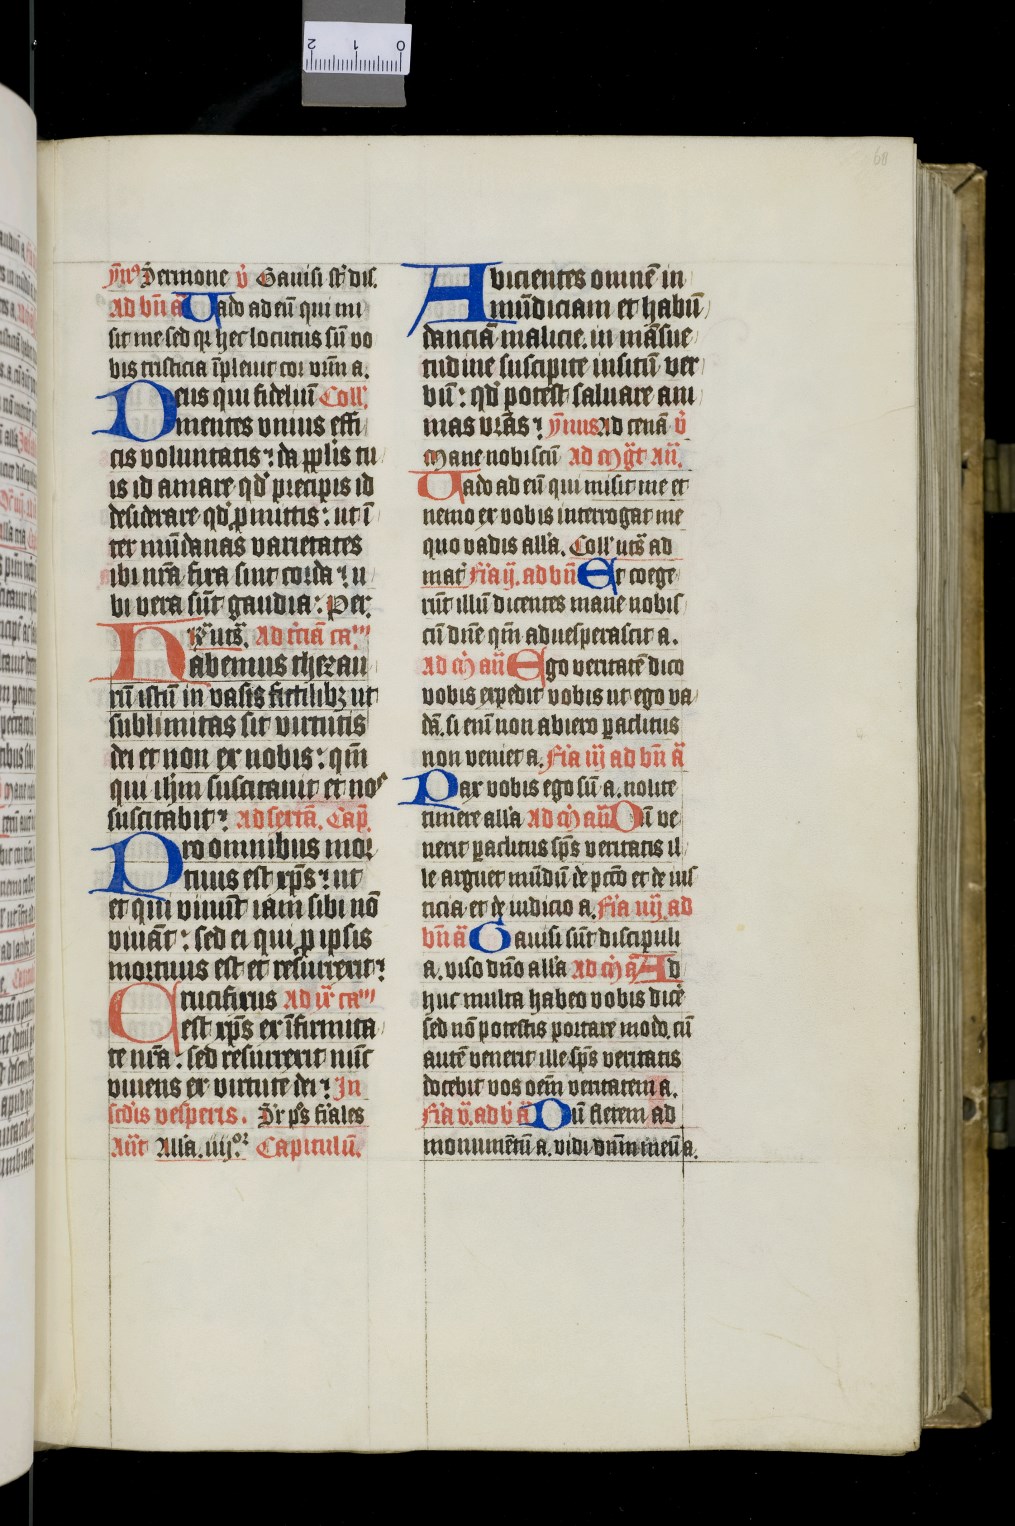 ỹn⁹ Sermone v̓ Gauisi st̄ dis.
Ad bn̄ a᷑ Uado ad eū qui mi
sit me sed qꝛ hec locutus sū vo
bis tristicia īpleuit cor vrm̄ a.
Deus qui fideliū Coll'.
mentes vnius effi
cis voluntatis: da pplis tu
is id amare qd̓ precipis id
desiderare qd̓ ꝓmittis: ut ī
ter mūdanas varietates
ibi nrā fixa sint corda: u
bi vera sūt gaudia: Per.
R̄ uts̄. Ad tciā ca᷑m
Habemus thezau
rū istū in vasis fictilibꝫ ut
sublimitas sit virtutis
dei et non ex nobis: qm̄
qui ihm̄ suscitauit et nos
suscitabit: Ad sextā. Cap̄.
Pro omnibus mor
tuus est xp̄s: ut
et qui viuūt iam sibi nō
viuāt: sed ei qui ꝓ ipsis
mortuus est et resurrexit:
Crucifixus Ad ix᷑ ca᷑m
est xp̄s ex īfirmita
te nrā: sed resurrexit nūc
viuens ex virtute dei: In
scdis vesperis. Sr̄ ps̄ fiales
Ant̄ Alla. iiijor Capitulū.
Abicientes omnē in
mūdiciam et habū
dantiā malicie. in māsue
tudine suscipite insitū ver
bū: qd̓ potest saluare ani
mas vrās: ỹnus Ad cenā v̓
Mane nobiscū Ad m̄ḡt Añ.
Uado ad eū qui misit me et
nemo ex vobis interrogat me
quo vadis alla. Coll' uts̄ ad
mat̄ Fia ij. ad bn̄ Et coege
rūt illū dicentes mane nobis
cū dn̄e qm̄ aduesperascit a.
Ad m̄ añ Ego veritatē dico
vobis expedit vobis ut ego va
dā. si enī non abiero paclitus
non veniet a. Fia iij ad bn̄ a᷑
Pax vobis ego sū a. nolite
timere alla Ad m̄ añ Cū ve
nerit paclitus sp̄s veritatis il
le arguet mūdū de pctō et de ius
ticia et de iudicio a. Fia iiij ad
bn̄ a᷑ Gauisi sūt discipuli
a. viso dn̄o alla Ad m̄ a᷑ Ad
huc multa habeo vobis dicē
sed nō potestis portare modo. cū
autē venerit ille sp̄s veritatis
docebit vos oēm veritatem a.
Fia v. ad b̄ a᷑ Dū flerem ad
monumētū a. vidi dn̄m meū a.